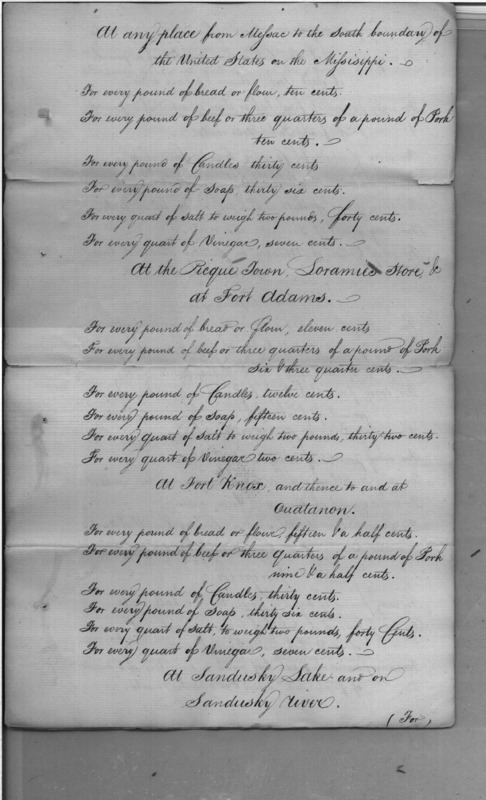 At any place from Messac to the South boundary of
the United States on the Missisippi.
For every pound of bread or flour, ten cents.
For every pound of beef or three quarters of a pound of Pork
ten cents.
For every pound of Candles thirty cents
For every pound of Soap thirty six cents.
For every quart of salt to weigh two pounds, forty cents.
For every quart of Vinegar, seven cents.
At the Picque Town, Loramies Store &
at Fort Adams.
For every pound of bread or flour, eleven cents
For every pound of beef or three quarters of a pound of Pork
Six & three quarter cents.
For every pound of Candles, twelve cents.
For every pound of Soap, fifteen cents.
For every quart of salt to weigh two pounds, thirty two cents.
For every quart of Vinegar two cents.
At Fort Knox, and thence to and at
Ouatanon.
For every pound of bread or flour, fifteen & a half cents.
For every pound of beef or three quarters of a pound of Pork
nine & a half cents.
For every pound of Candles, thirty cents.
For every pound of Soap, thirty six cents.
For every quart of salt, to weigh two pounds, forty Cents.
For every quart of Vinegar, seven cents.
At Sandusky Lake and on
Sandusky River.
(For)